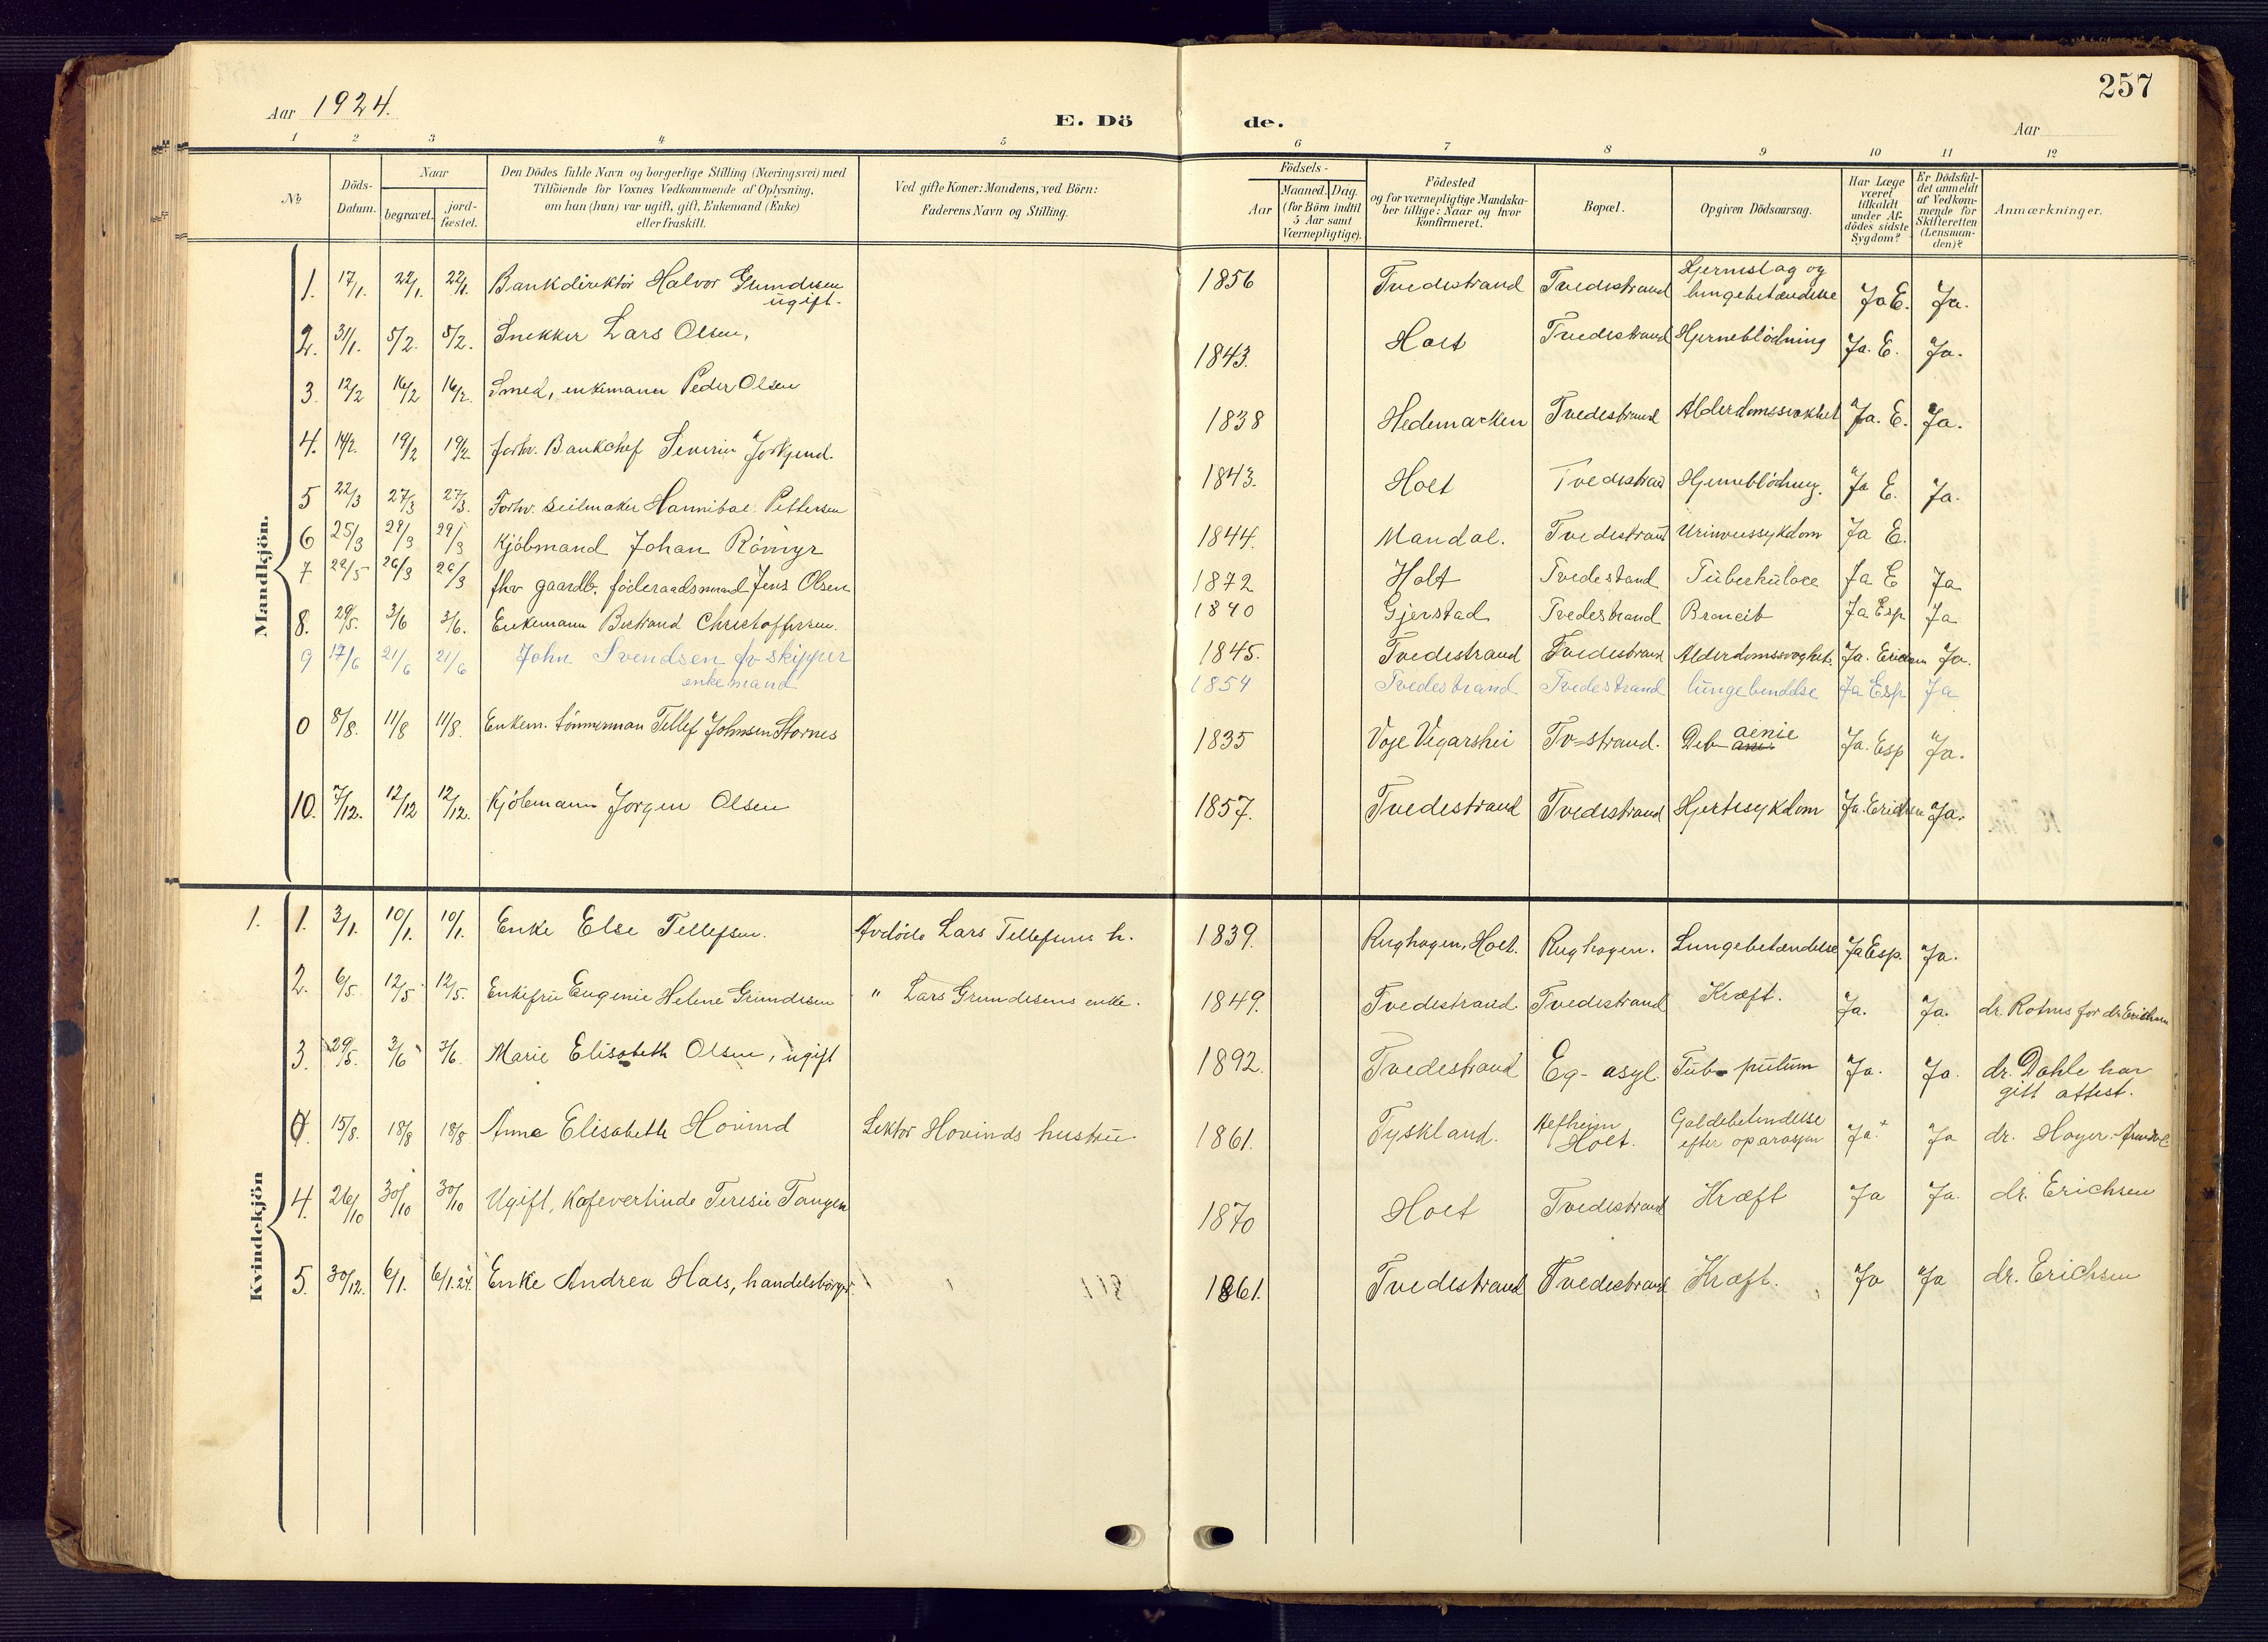 257
Aar 1924.
E. Dö de.
Aar
1 2 3 4 5 6 7 8 9 10 11 12
No
Döds-Datum.
Naar
begravet.
jord-fæstet.
Den Dödes fulde Navn og borgerlige Stilling (Næringsvei) med
Tilföiende for Voxnes Vedkommende af Oplysning,
om han (hun) var ugift, gift, Enkemand (Enke)
eller fraskilt.
Ved gifte Koner: Mandens, ved Börn:
Faderens Navn og Stilling.
Födsels-
Aar
Maaned. Dag.
(for Börn indtil
5 Aar samt
Værnepligtige).
Födested
og for værnepligtige Mandska-
ber tillige: Naar og hvor
konfirmeret.
Bopæl.
Opgiven Dödsaarsag.
Har Læge
været
tilkaldt
under Af-
dödes sidste
Sygdom?
Er Dödsfal-
det anmeldt
af Vedkom-
mende for
Skifteretten
(Lensman-
den)?
Anmærkninger.
Mandkjön.
1. 17/1. 22/1. 22/1. Bankdirektör Halvor Gundersen ugift. 1856 Tvedestrand Tvedestrand Hjerneslag og lungebetændelse Ja E. Ja.
2. 31/1. 5/2. 5/2. Snekker Lars Olsen, 1843. Holt Tvedestrand Hjerneblödning Ja. E. Ja.
3. 12/2 16/2 16/2. Smed, enkemann Peder Olsen 1838 Hedemarken Tvedestrand Alderdomssvakhet Ja. E. Ja.
4. 14/2. 19/2 19/2. forhv. Bankchef Severin 1843. Holt Tvedestrand Hjerneblödning. Ja E. Ja.
5 22/3 27/3 27/3. Forhv. seilmaker Hannibal Pettersen 1844. Mandal. Tvedestrand Urinveissykdom Ja E.
6 25/3 29/3 29/3 Kjöbmand Johan Römyr 1872 Holt Tvedestand Tüberkülose Ja E Ja
7 22/5 26/3 26/3 fhv gaardb. föderaadsmand Jens Olsen 1840 Gjerstad Tvedestrand Ja Esp Ja
8. 29/5. 3/6 3/6. Enkemann Bertrand Christoffersen. 1845. Tvedestrand Tvedestrand Alderdomssvaghet. Ja. Erichsen Ja.
9 17/6 21/6 21/6 John Svendsen fv skipper enkemand 1854 Tvedestrand Tvedestrand lüngebendelse Ja Esp Ja
0 8/8. 11/8 11/8. Enkem. tömmerman Tellef Johnsen Stornes 1835 Voje Vegarshei Tv=strand. Ja. Esp Ja.
10. 7/12. 12/12 12/12. Kjöbmann Jorgen Olsen 1857. Tvedestrand Tvedestrand Hjertesykdom Ja. Erichsen Ja.
Kvindekjön
1. 1. 3/1. 10/1. 10/1. Enke Else Tellefsen. Avdöde Lars Tellefsens h. 1839. Rughagen, Holt. Rughagen. Lungebetændelse Ja Esp. Ja.
2. 6/5. 12/5 12/5. Enkefrü Eugenie Helene Gründesen " Lars Grundesens enke. 1849. Tvedestrand Tvedestrand Kræft. Ja. Ja. dr. Rotnes for dr. Erichsen
3. 29/5. 3/6 3/6. Marie Elisabeth Olsen, ugift 1892. Tvedestrand Eg-asyl. Tüb- pülüm Ja. Ja. dr. Dahle har gitt attest.
0. 15/8. 18/8 18/8 Anna Elisabeth Hovind Lektor Hovinds hustrü. 1861. Tyskland. Holt. Galdebetendelse efter oparasjon Ja. Ja dr. Hoyer. Arendal
4. 26/10 30/10 30/10 Ugift, Kafevertinde Teresie Tangen 1870 Holt Tvedestrand Kræft Ja Ja. dr. Erichsen
5. 30/12. 6/1. 6/1.24. Enke Andrea Hals, handelsborger. 1861. Tvedestrand Tvedestrand Kræft. Ja Ja dr. Erichsen